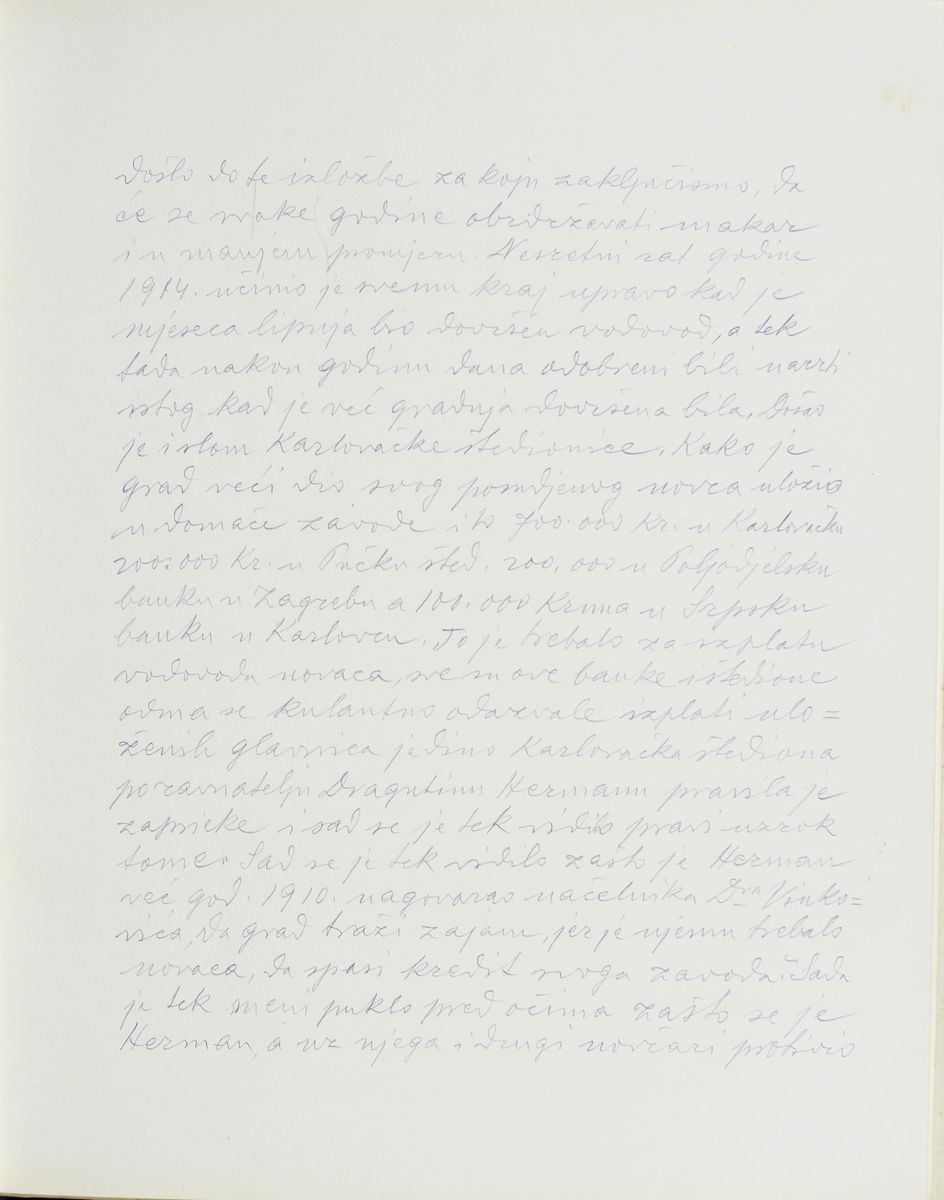 došlo do te izložbe za koju zaključismo, da
će se svake godine obzdržavati makar
i u manjem pomjeru. Nesretni rat godine
1914. učinio je svemu kraj upravo kad je
mjeseca lipnja bio dovršen vodovod, a tek
tada nakon godinu dana odobreni bili nacrti
istog, kad je već gradnja dovršena bila. Došao
je i slom Karlovačke štedionice. Kako je
grad veći dio svog posudjenog novca uložio
u domaće zavode i to 700.000 Kr. u Karlovačku
200.000 Kr. u Pučku šted. 200.000 u Poljodjelsku
banku u Zagrebu a 100.000 Kruna u Srpsku
banku u Karlovcu. To je trebalo za isplatu
vodovoda novaca, sve su ove banke i štedione
odma se kulantno odazvale isplati ulo=
ženih glavnica jedino Karlovačka štediona
po ravnatelju Dragutinu Hermanu pravila je
zaprieke i sad se je tek vidilo pravi uzrok
tome. Sad se je tek vidilo zašto je Herman
već god. 1910. nagovarao načelnika Dra Vinko=
vića, da grad traži zajam, jer je njemu trebalo
novaca, da spasi kredit svoga zavoda. Sada
je tek meni puklo pred očima zašto se je
Herman, a uz njega i drugi novčari protivio